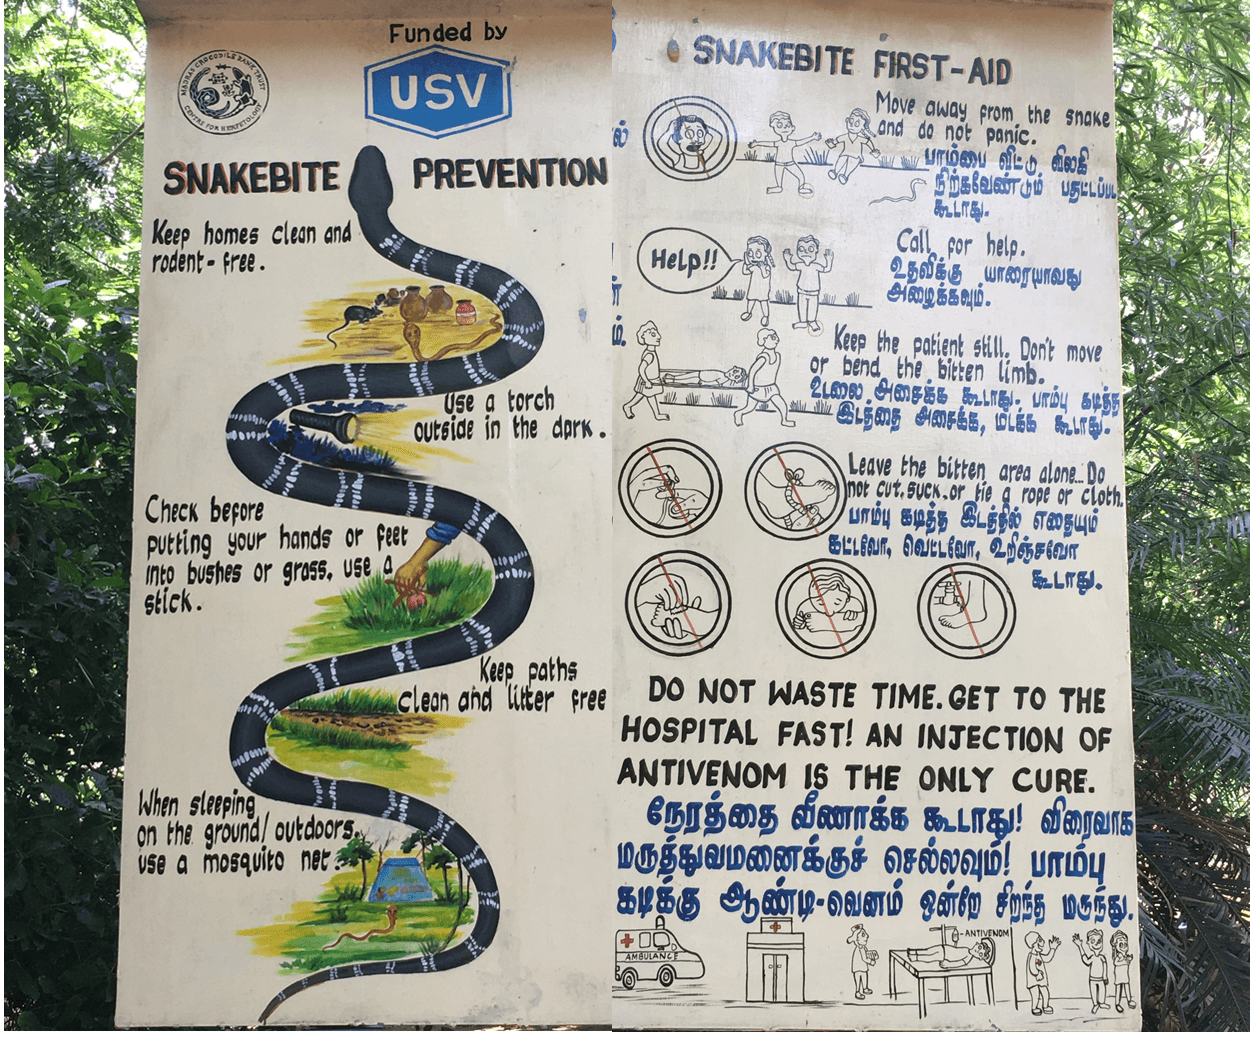 Funded by
USV
MADRAS CROCODILE BANK TRUST
CENTRE FOR HERPETOLOGY
SNAKEBITE PREVENTION
Keep homes clean and
rodent-free.
Use a torch
outside in the dark.
Check before
putting your hands or feet
into bushes or grass, use a
stick.
Keep paths
clean and litter free
When sleeping
on the ground/outdoors,
use a mosquito net.
SNAKEBITE FIRST-AID
Move away from the snake
and do not panic.
பாம்பை விட்டு விலகி
நிற்கவேண்டும் பதட்டப்பட
கூடாது.
Help!!
Call for help.
உதவிக்கு யாரையாவது
அழைக்கவும்.
Keep the patient still. Don't move
or bend the bitten limb.
உடலை அசைக்க கூடாது. பாம்பு கடித்த
இடத்தை அசைக்க, மடக்க கூடாது.
Leave the bitten area alone... Do
not cut, suck, or tie a rope or cloth.
பாம்பு கடித்த இடத்தில் எதையும்
கட்டவோ, வெட்டவோ, உறிஞ்சவோ
கூடாது.
DO NOT WASTE TIME. GET TO THE
HOSPITAL FAST! AN INJECTION OF
ANTIVENOM IS THE ONLY CURE.
நேரத்தை வீணாக்க கூடாது! விரைவாக
மருத்துவமனைக்குச் செல்லவும்! பாம்பு
கடிக்கு ஆண்டி-வெனம் ஒன்றே சிறந்த மருந்து.
AMBULANCE
ANTIVENOM